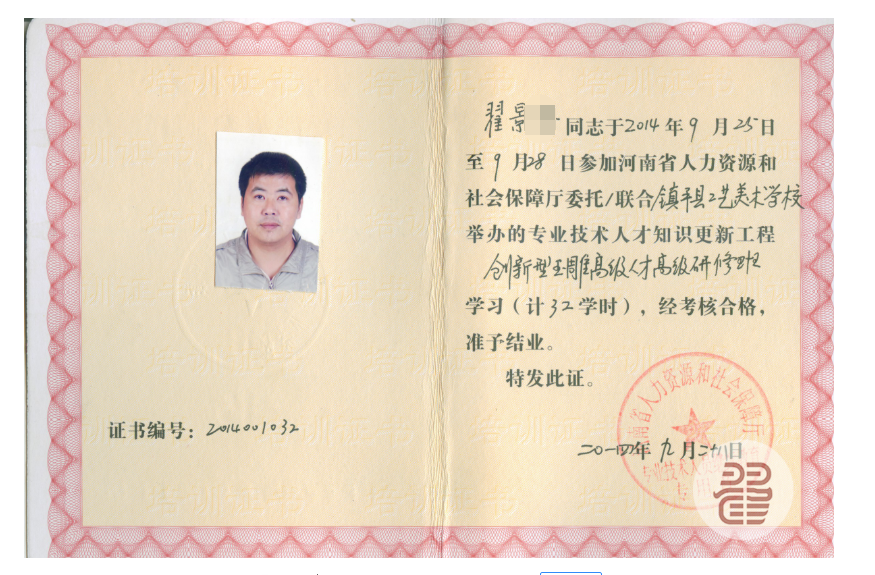 证书编号：2014001032
翟景
同志于2014年9月25日
至9月28日参加河南省人力资源和
社会保障厅委托/联合镇平县工艺美术学校
举办的专业技术人才知识更新工程
创新型玉雕高级人才高级研修班
学习（计32学时），经考核合格，
准予结业。
特发此证。
河南省人力资源和社会保障厅
二〇一四年九月二十八日